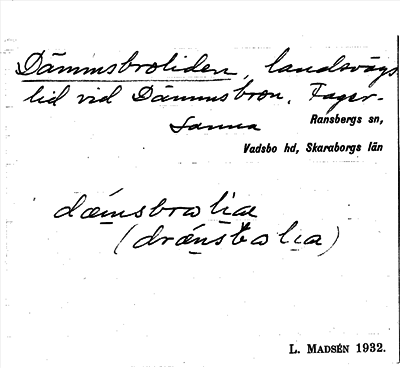 Dämmsbroliden, landsvägs-
lid vid Dämmsbron, Fager-
sanna
Ransbergs sn,
Vadsbo hd, Skaraborgs län
dǽmsbro lia
(drǽnsbo lia)
L. MADSÉN 1932.